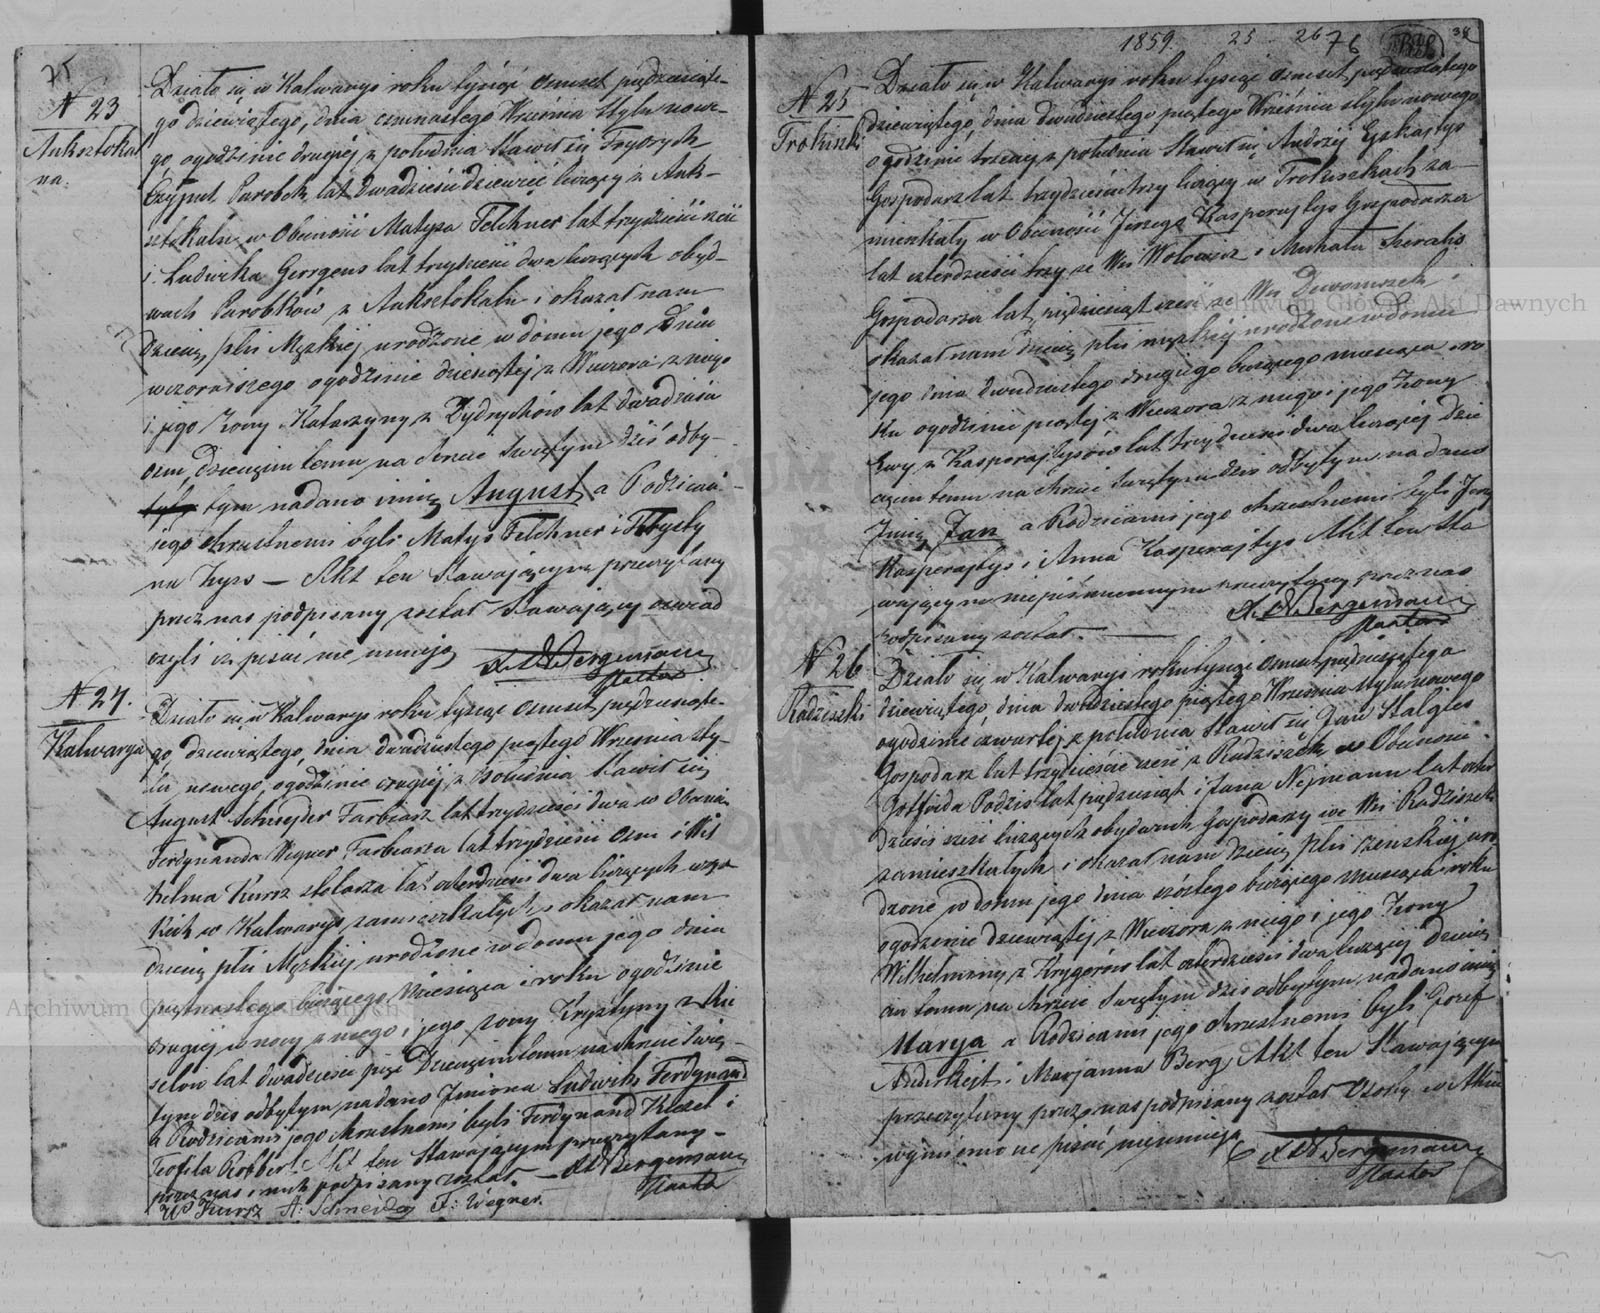 75
N 23
Auksztokal
na.
Działo się w Kalwaryi roku tysiąc osmset pięćdziesiąte-
go dziewiątego, dnia Września stylu nowe-
go, ogodzinie drugiéj z południa Stawił się Frydrych
Parobek lat dwadzieścia dziewięć liczący z Auk-
sztokalu w Obecności Matysa Felchner lat trzydzieści
i Ludwika Gerrgens lat trzydzieści dwa liczących obyd-
wóch Parobków z Auksztokalu i okazał nam
Dziecię płci Męzkiéj urodzone w domu jego Dnia
wczorajszego ogodzinie dziesiątej z Wieczora z niego
i jego Żony Katarzyny z Dydrychów lat dwadzieścia
osm, Dziecięciu temu na Chrzcie Świętym dziś odby-
tym nadano imię August, a Rodzicami
jego chrzestnemi byli Matys Felchner i
na Akt ten Stawającym przeczytany
przez nas podpisany został Stawający oświad
czyli iż pisać nie umieją Bergemann
Pastor
N 24.
Kalwarya
Działo się w Kalwaryi roku tysiąc osmset pięćdziesiąte-
go, dziewiątego, dnia dwudziestego piątego Września sty-
lu nowego, ogodzinie drugiéj z południa Stawił się
August Schnejder Farbiarz lat trzydzieści dwa w Obecno
Ferdynanda Wegner Farbiarza lat trzydzieści osm i Wil
helma Kursz stolarza lat czterdzieści dwa liczących
w Kalwaryi zamieszkałych i okazał nam
dziecię płci Męzkiéj urodzone w domu jego dnia
piętnastego bieżącego Miesiąca i roku ogodzinie
drugiéj w nocy z niego i jego żony Krystyny z Kie
selów lat dwadzieścia pięć Dziecięciu temu na chrzcie Świę-
tym dziś odbytym nadano Imiona Ludwik Ferdynand
a Rodzicami jego chrzestnemi byli Ferdynand Kiesel i
Teofila Robbert. Akt ten Stawającym przeczytany-
przez nas i nich podpisany został. — Bergemann
Pastor
W Kursz A: Schneider F: Wegner.
1859. 25 - 26 76 38
N 25
Trokiszki
Działo się w Kalwaryi roku tysiąc osmset pięćdziesiątego
dziewiątego, dnia dwudziestego piątego Września stylu nowego,
ogodzinie trzeciéj z południa Stawił się Andrzéj
Gospodarz lat trzydzieści trzy liczący w Trokiszkach za-
mieszkały w Obecności Jerzego Kasperajtys Gospodarza
lat czterdzieści trzy ze Wsi i Michała
Gospodarza lat pięćdziesiąt sześć ze Wsi i
okazał nam dziecię płci męzkiéj urodzone w domu
jego dnia dwudziestego drugiego bieżącego miesiąca i ro
ku ogodzinie piątéj z Wieczora z niego i jego Żony
Ewy z Kasperajtysów lat trzydzieści dwa liczącéj Dzie
cięciu temu na chrzcie świętym dziś odbytym nadano
Imię Jan a Rodzicami jego chrzestnemi byli Jerzy
Kasperajtys i Anna Kasperajtys Akt ten Sta
wającym niepiśmiennym przeczytany przez nas
podpisany został. — Bergemann
Pastor
N 26
Radziszki
Działo się w Kalwaryi roku tysiąc osmset pięćdziesiątego
dziewiątego, dnia dwudziestego piątego Września stylu nowego
ogodzinie czwartéj z południa Stawił się Jan Stalgies
Gospodarz lat trzydzieści sześć z Radziszek w Obecności
Gotfrida Podzis lat pięćdziesiąt i Jana Nejmann lat czter
dzieści sześć liczących obydwóch Gospodarzy we Wsi Radziszki
zamieszkałych i okazał nam dziecię płci żenskiéj uro
dzone w domu jego dnia szóstego bieżącego miesiąca i roku
ogodzinie dziewiątéj z Wieczora z niego i jego Żony
Wilhelminy z Krygerów lat czterdzieści dwa liczącéj Dziecię
ciu temu na chrzcie Świętym dziś odbytym nadano imię
Marya a Rodzicami jego chrzestnemi byli Józef
i Marjanna Berg Akt ten Stawającym
przeczytany przez nas podpisany został Osoby w Akcie
wymienione pisać nieumieją Bergemann
Pastor
Archiwum Główne Akt Dawnych
Archiwum Główne Akt Dawnych